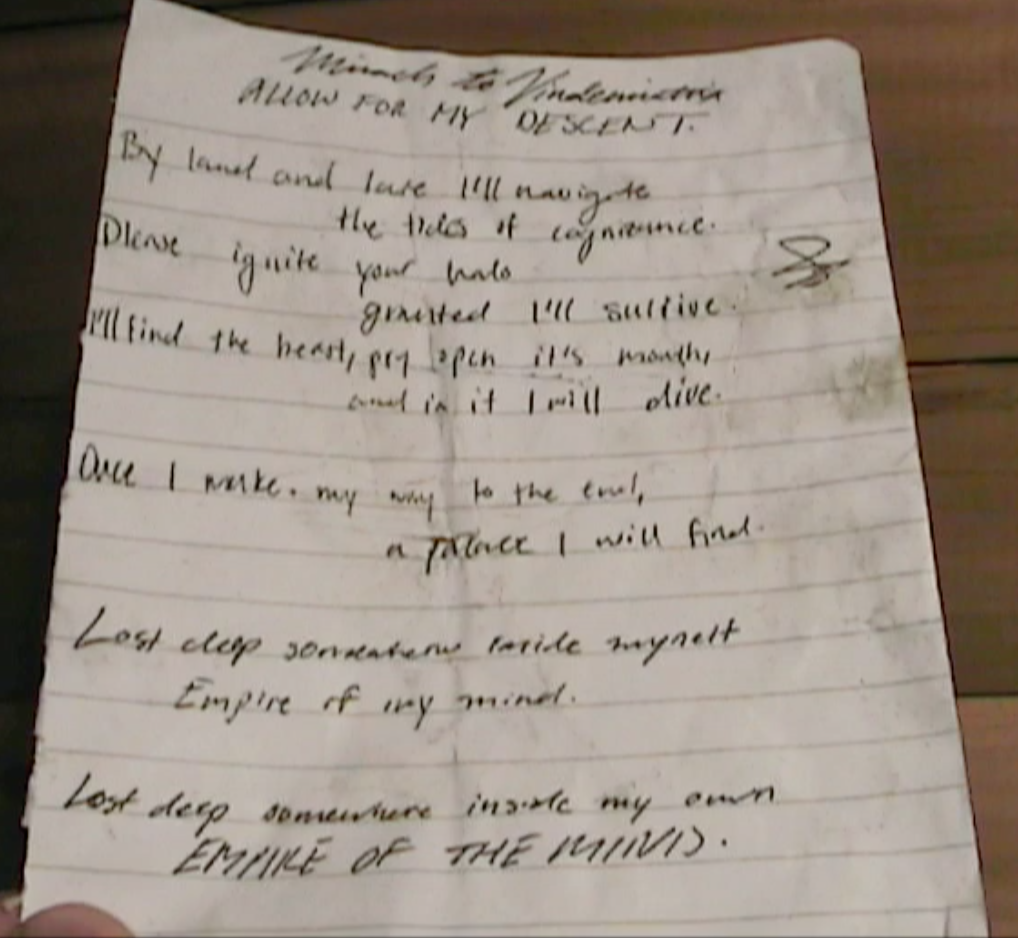 Mirach to Vindemiatrix
ALLOW FOR MY DESCENT.
By land and lake I'll navigate
the tides of cognizance.
Please ignite your halo
granted I'll survive.
I'll find the beast, pry open it's mouth,
and in it I will dive.
Once I make my way to the end,
a palace I will find.
Lost deep somewhere inside myself
Empire of my mind.
Lost deep somewhere inside my own
EMPIRE OF THE MIND.